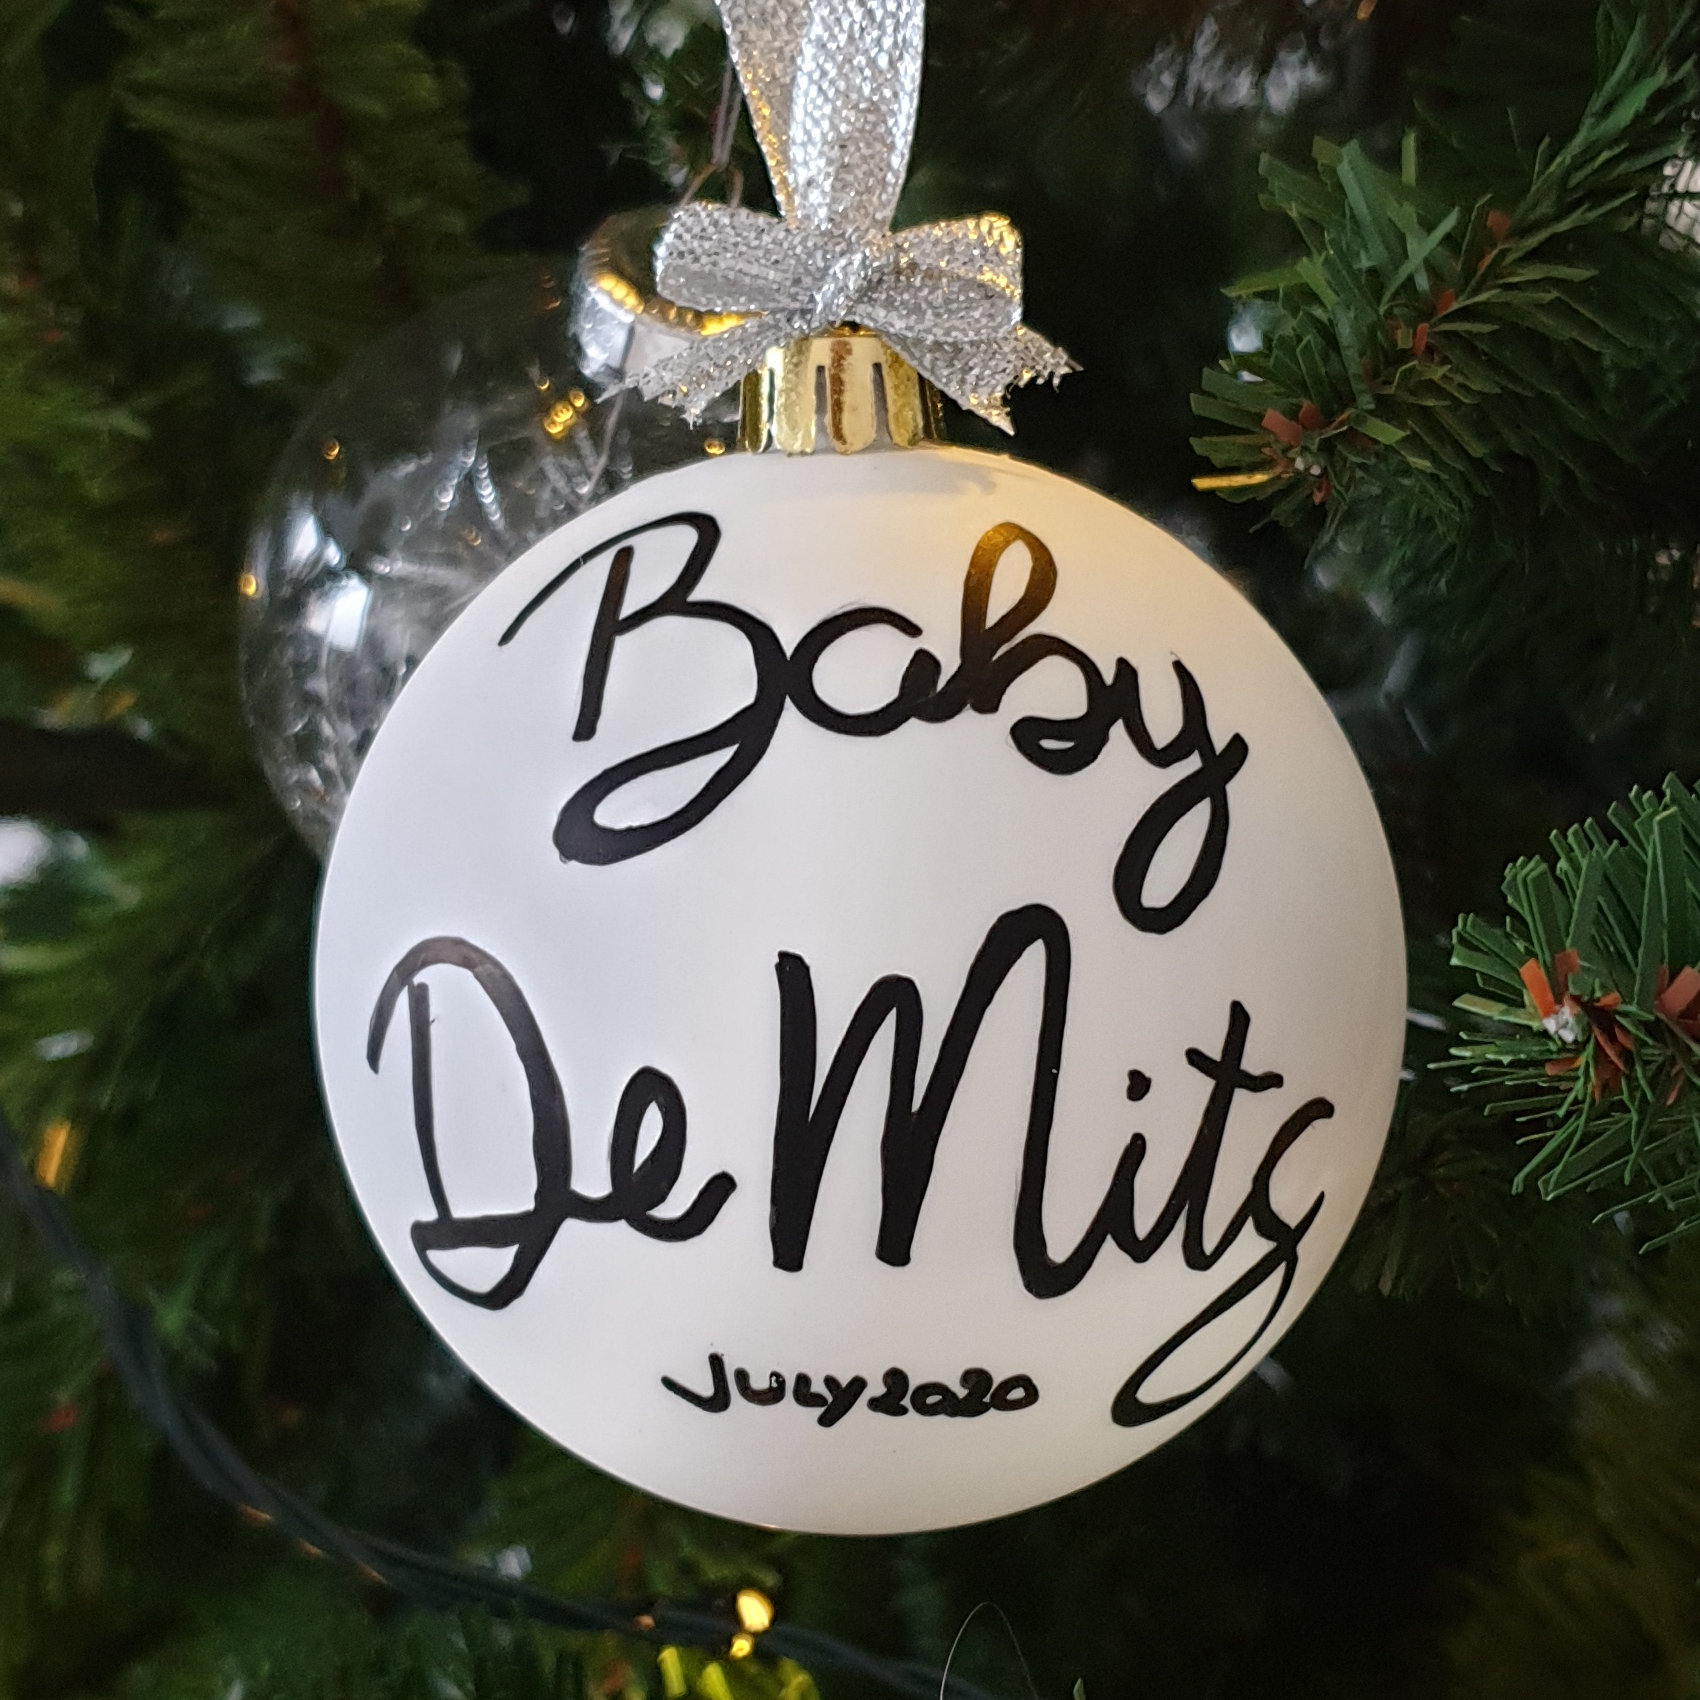 Baby
De Mitg
JULY 2020